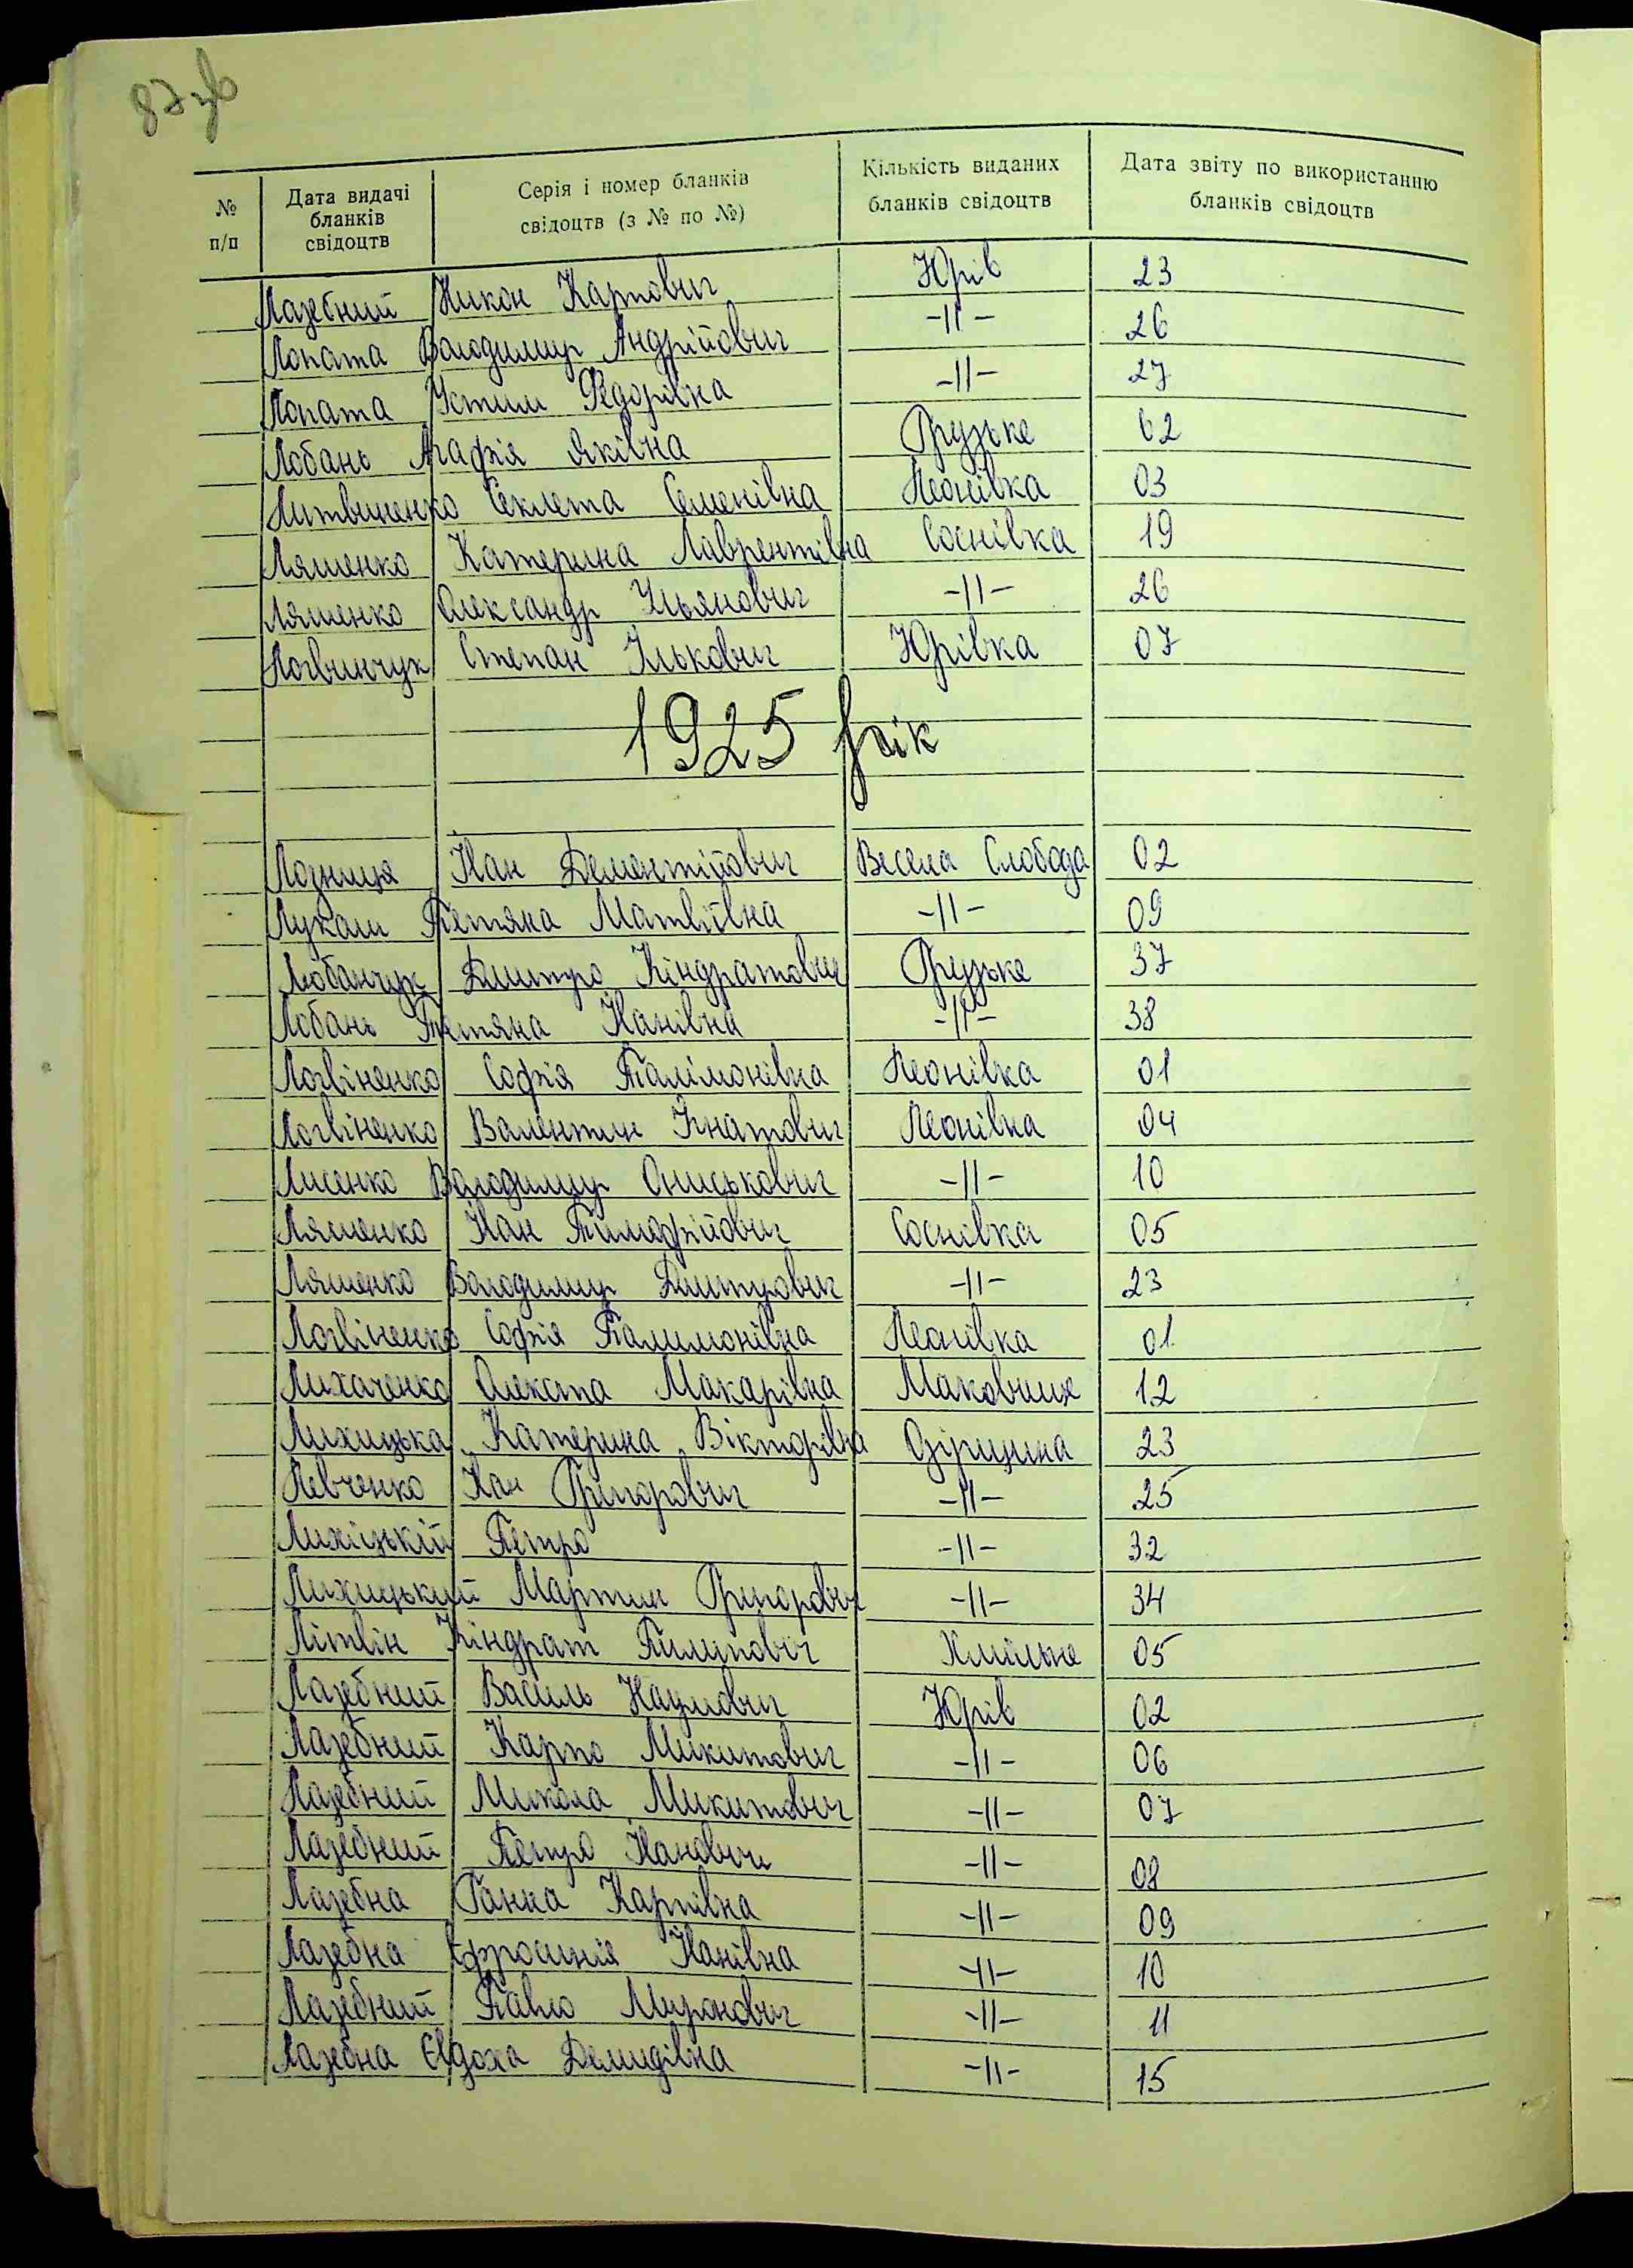 87 зв
№ п/п Дата видачі бланків свідоцтв Серія і номер бланків свідоцтв (з № по №) Кількість виданих бланків свідоцтв Дата звіту по використанню бланків свідоцтв
Лазебний Никон Карпович Юрів 23
Лопата Володимир Андрійович -11- 26
Лопата Устим Федорівна -11- 27
Лобань Агафія Яківна Грузьке 62
Литвиненко Секлета Семенівна Леонівка 03
Ляшенко Катерина Лаврентівна Соснівка 19
Ляшенко Олександр Ульянович -11- 26
Логвинчук Степан Ількович Юрівка 07
1925 рік
Лозниця Іван Дементійович Весела Слобода 02
Лукаш Тетяна Матвіївна -11- 09
Лобанчук Дмитро Кіндратович Грузьке 37
Лобань Тетяна Іванівна -11- 38
Логвіненко Софія Палімонівна Леонівка 01
Логвіненко Валентин Ігнатович Леонівка 04
Лисенко ВолодимирОниськович -11- 10
Ляшенко Іван Тимофійович Соснівка 05
Ляшенко Володимир Дмитрович -11- 23
Логвіненко Софія Палимонівна Леонівка 01
Лихаченко Олекста Макарівна Маковище 12
Лихицька Катерина Вікторівна 23
Левченко Іван Григорович -11- 25
Лихіцькій Петро -11- 32
Лихицький Мартин Григорович -11- 34
Літвін Кіндрат Пилипович Хмільне 05
Лазебний Василь Наумович Юрів 02
Лазебний Карпо Микитович -11- 06
Лазебний Микола Микитович -11- 07
Лазебний Петро Іванович -11- 08
Лазебна Ганна Карпівна -11- 09
Лазебна Єфросинія Іванівна -11- 10
Лазебний Павло Миронович -11- 11
Лазебна Євдоха Демидівна -11- 15